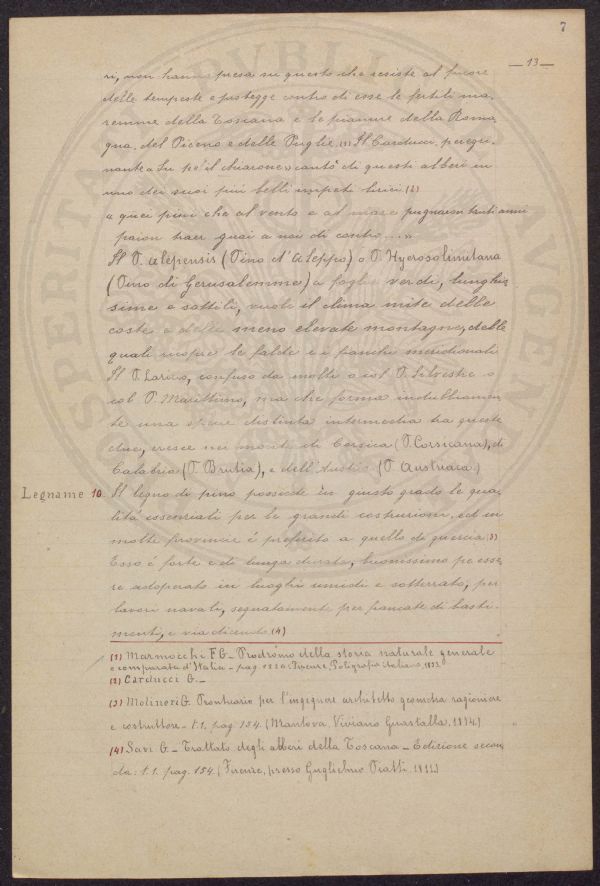 7
— 13 —
ri, non hanno presa su questo che resiste al furore
delle tempeste e protegge contro di esse le fertili ma-
remme della Toscana e le pianure della Roma-
gna, del Piceno e delle Puglie. (1) Il Carducci, peregri-
nante a lui pe' il chiarone» cantò di questi alberi in
uno dei suoi più belli impeti lirici (2)
« quei pini che al vento e al mare pugnaron tanti anni
paion guai a noi di contro ..... »
Il P. alepensis (Pino d'Aleppo) o P. Hyerosolimitana
(Pino di Gerusalemme) a foglie verdi, lunghis-
sime e sottili, vuole il clima mite delle
coste e delle meno elevate montagne, delle
quali ricopre le falde e i fianchi meridionali
Il P. Larico, confuso da molti o col P. Silvestre o
col P. Marittimo, ma che forma indubbiamen-
te una specie distinta intermedia tra queste
due, cresce nei monti di Corsica (P. Corsicana), di
Calabria (P. Brutia), e dell'Austria (P. Austriaca.)
Legname 10. Il legno di pino possiede in giusto grado le qua-
lità essenziali per le grandi costruzioni, ed in
molte provincie è preferito a quello di quercia (3)
Esso è forte e di lunga durata, buonissimo per esse-
re adoperato in luoghi umidi e sotterrato, per
lavori navali, segnatamente per fiancate di basti-
menti, e via dicendo (4)
(1) Marmocchi F. G. - Prodromo della storia naturale generale
e comparata d'Italia - pag. Firenze, Poligrafia italiana,
(2) Carducci G. -
(3) Molinari G. Prontuario per l'ingegnere architetto geometra ragioniere
e costruttore - t. 1. pag. 154. (Mantova, Viviano Guastalla, 1874)
(4) Savi G - Trattato degli alberi della Toscana - Edizione secon-
da: t. 1. pag. 154. (Firenze, presso Guglielmo Piatti 1811)